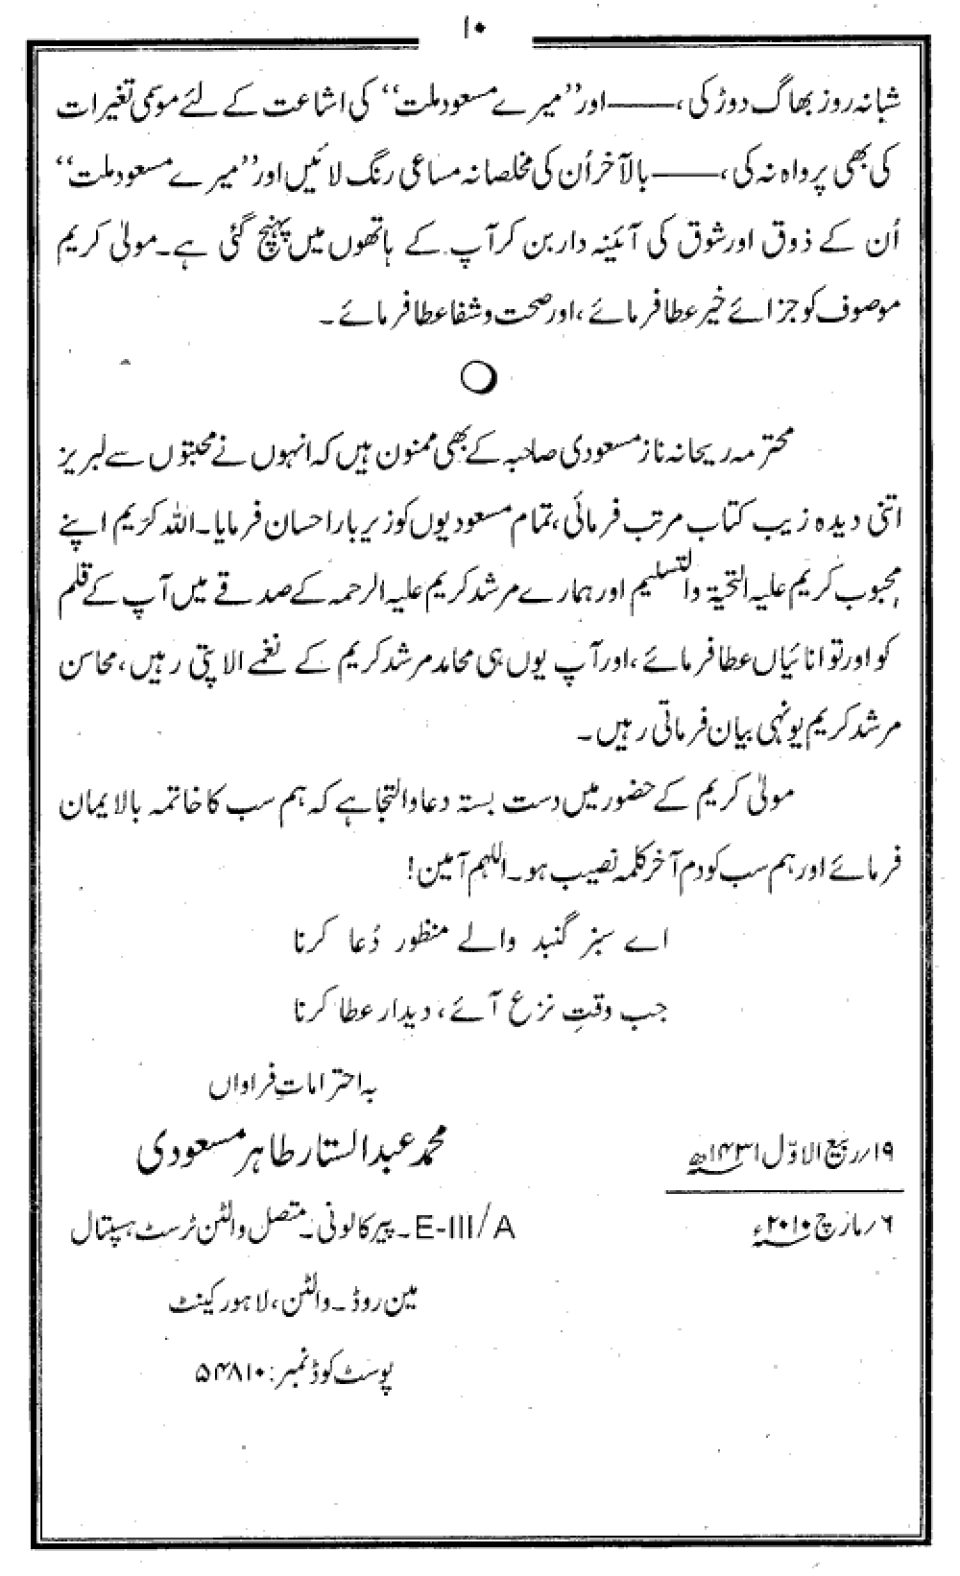 ۱۰
شبانہ روز بھاگ دوڑ کی، ——— اور ”میرے مسعود ملت“ کی اشاعت کے لئے موسمی تغیرات
کی بھی پرواہ نہ کی، ——— بالآخر اُن کی مخلصانہ مساعی رنگ لائیں اور ”میرے مسعود ملت“
اُن کے ذوق اور شوق کی آئینہ دار بن کر آپ کے ہاتھوں میں پہنچ گئی ہے۔ مولیٰ کریم
موصوف کو جزائے خیر عطا فرمائے، اور صحت و شفا عطا فرمائے۔
محترمہ ریحانہ ناز مسعودی صاحبہ کے بھی ممنون ہیں کہ انہوں نے محبتوں سے لبریز
اتنی دیدہ زیب کتاب مرتب فرمائی، تمام مسعودیوں کو زیر بار احسان فرمایا۔ اللہ کریم اپنے
محبوب کریم علیہ التحیۃ والتسلیم اور ہمارے مرشد کریم علیہ الرحمہ کے صدقے میں آپ کے قلم
کو اور توانائیاں عطا فرمائے، اور آپ یوں ہی محامد مرشد کریم کے نغمے الاپتی رہیں، محاسن
مرشد کریم یونہی بیان فرماتی رہیں۔
مولیٰ کریم کے حضور میں دست بستہ دعا و التجا ہے کہ ہم سب کا خاتمہ بالایمان
فرمائے اور ہم سب کو دم آخر کلمہ نصیب ہو۔ اللہم آمین!
اے سبز گنبد والے منظور دُعا کرنا
جب وقتِ نزع آئے، دیدار عطا کرنا
بہ احتراماتِ فراواں
۱۹؍ ربیع الاوّل ۱۴۳۱ھ
محمد عبدالستار طاہر مسعودی
۶؍ مارچ ۲۰۱۰ء
E-III/A۔ پیر کالونی۔ متصل والٹن ٹرسٹ ہسپتال
مین روڈ۔ والٹن، لاہور کینٹ
پوسٹ کوڈ نمبر: ۵۴۸۱۰